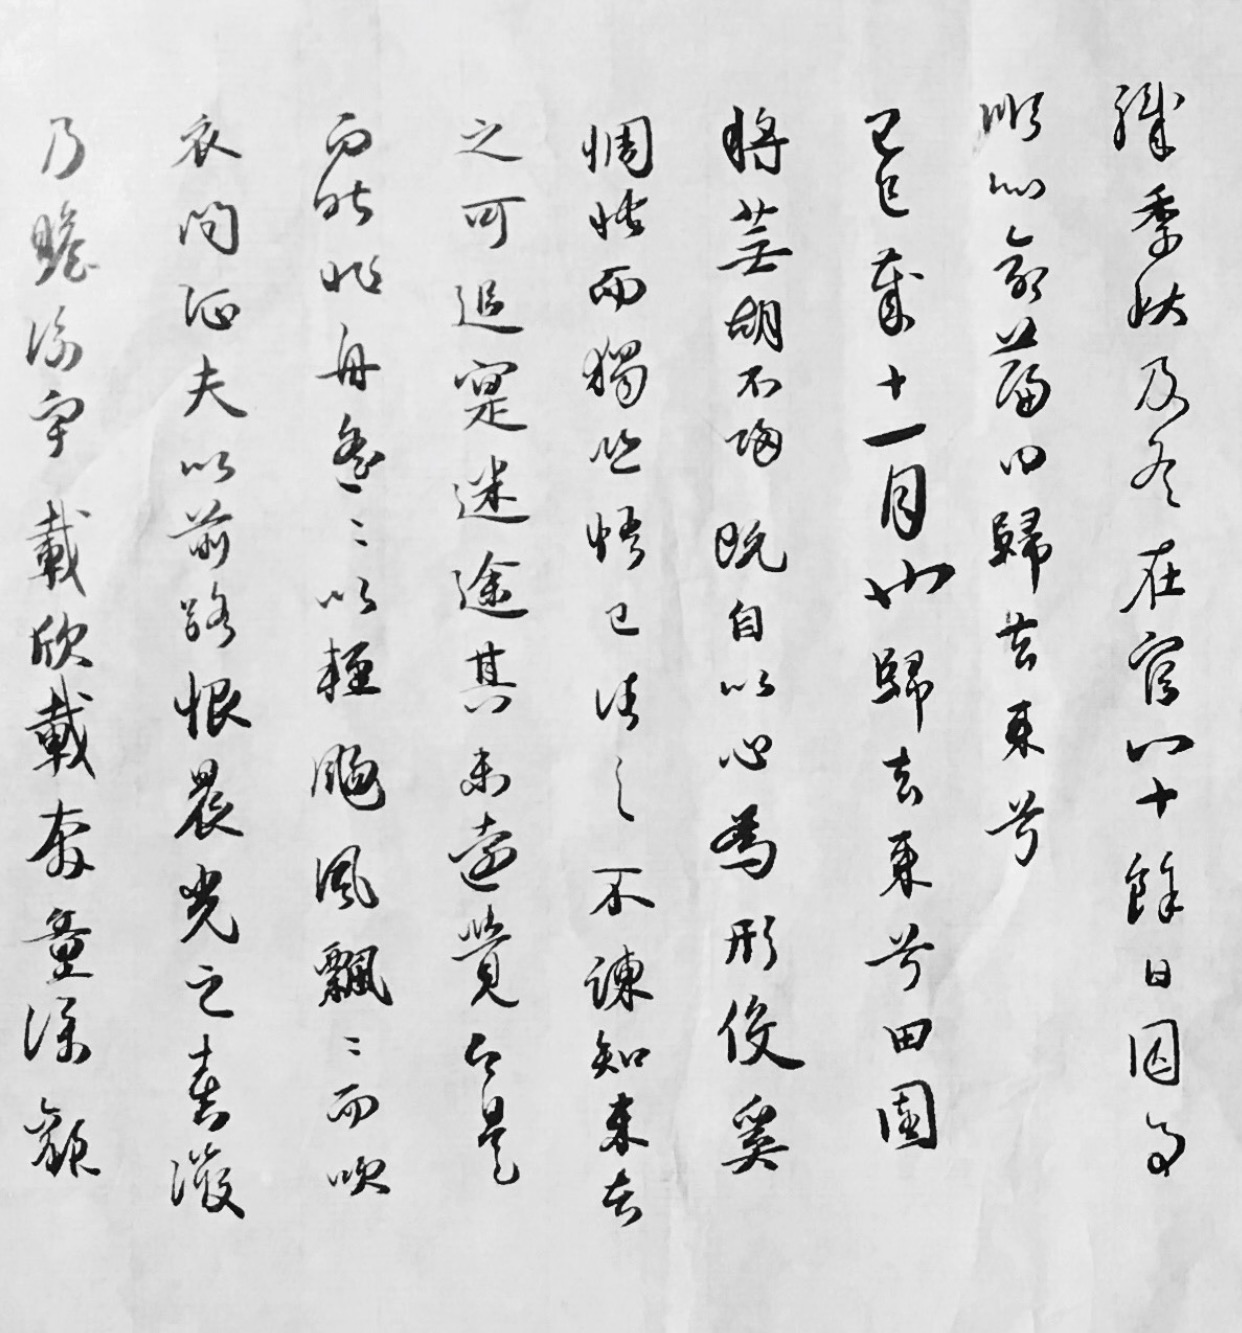 職季秋及冬在官八十餘日因事
順心命萹曰歸去来兮
乙巳歲十一月也歸去来兮田園
将蕪胡不歸既自以心為形役奚
惆悵而獨悲悟已往之不諫知来者
之可追寔迷途其未遠覺今是
而昨非舟遙〻以輕颺風飄〻而吹
衣問征夫以前路恨晨光之熹微
乃瞻衡宇載欣載奔童僕歡